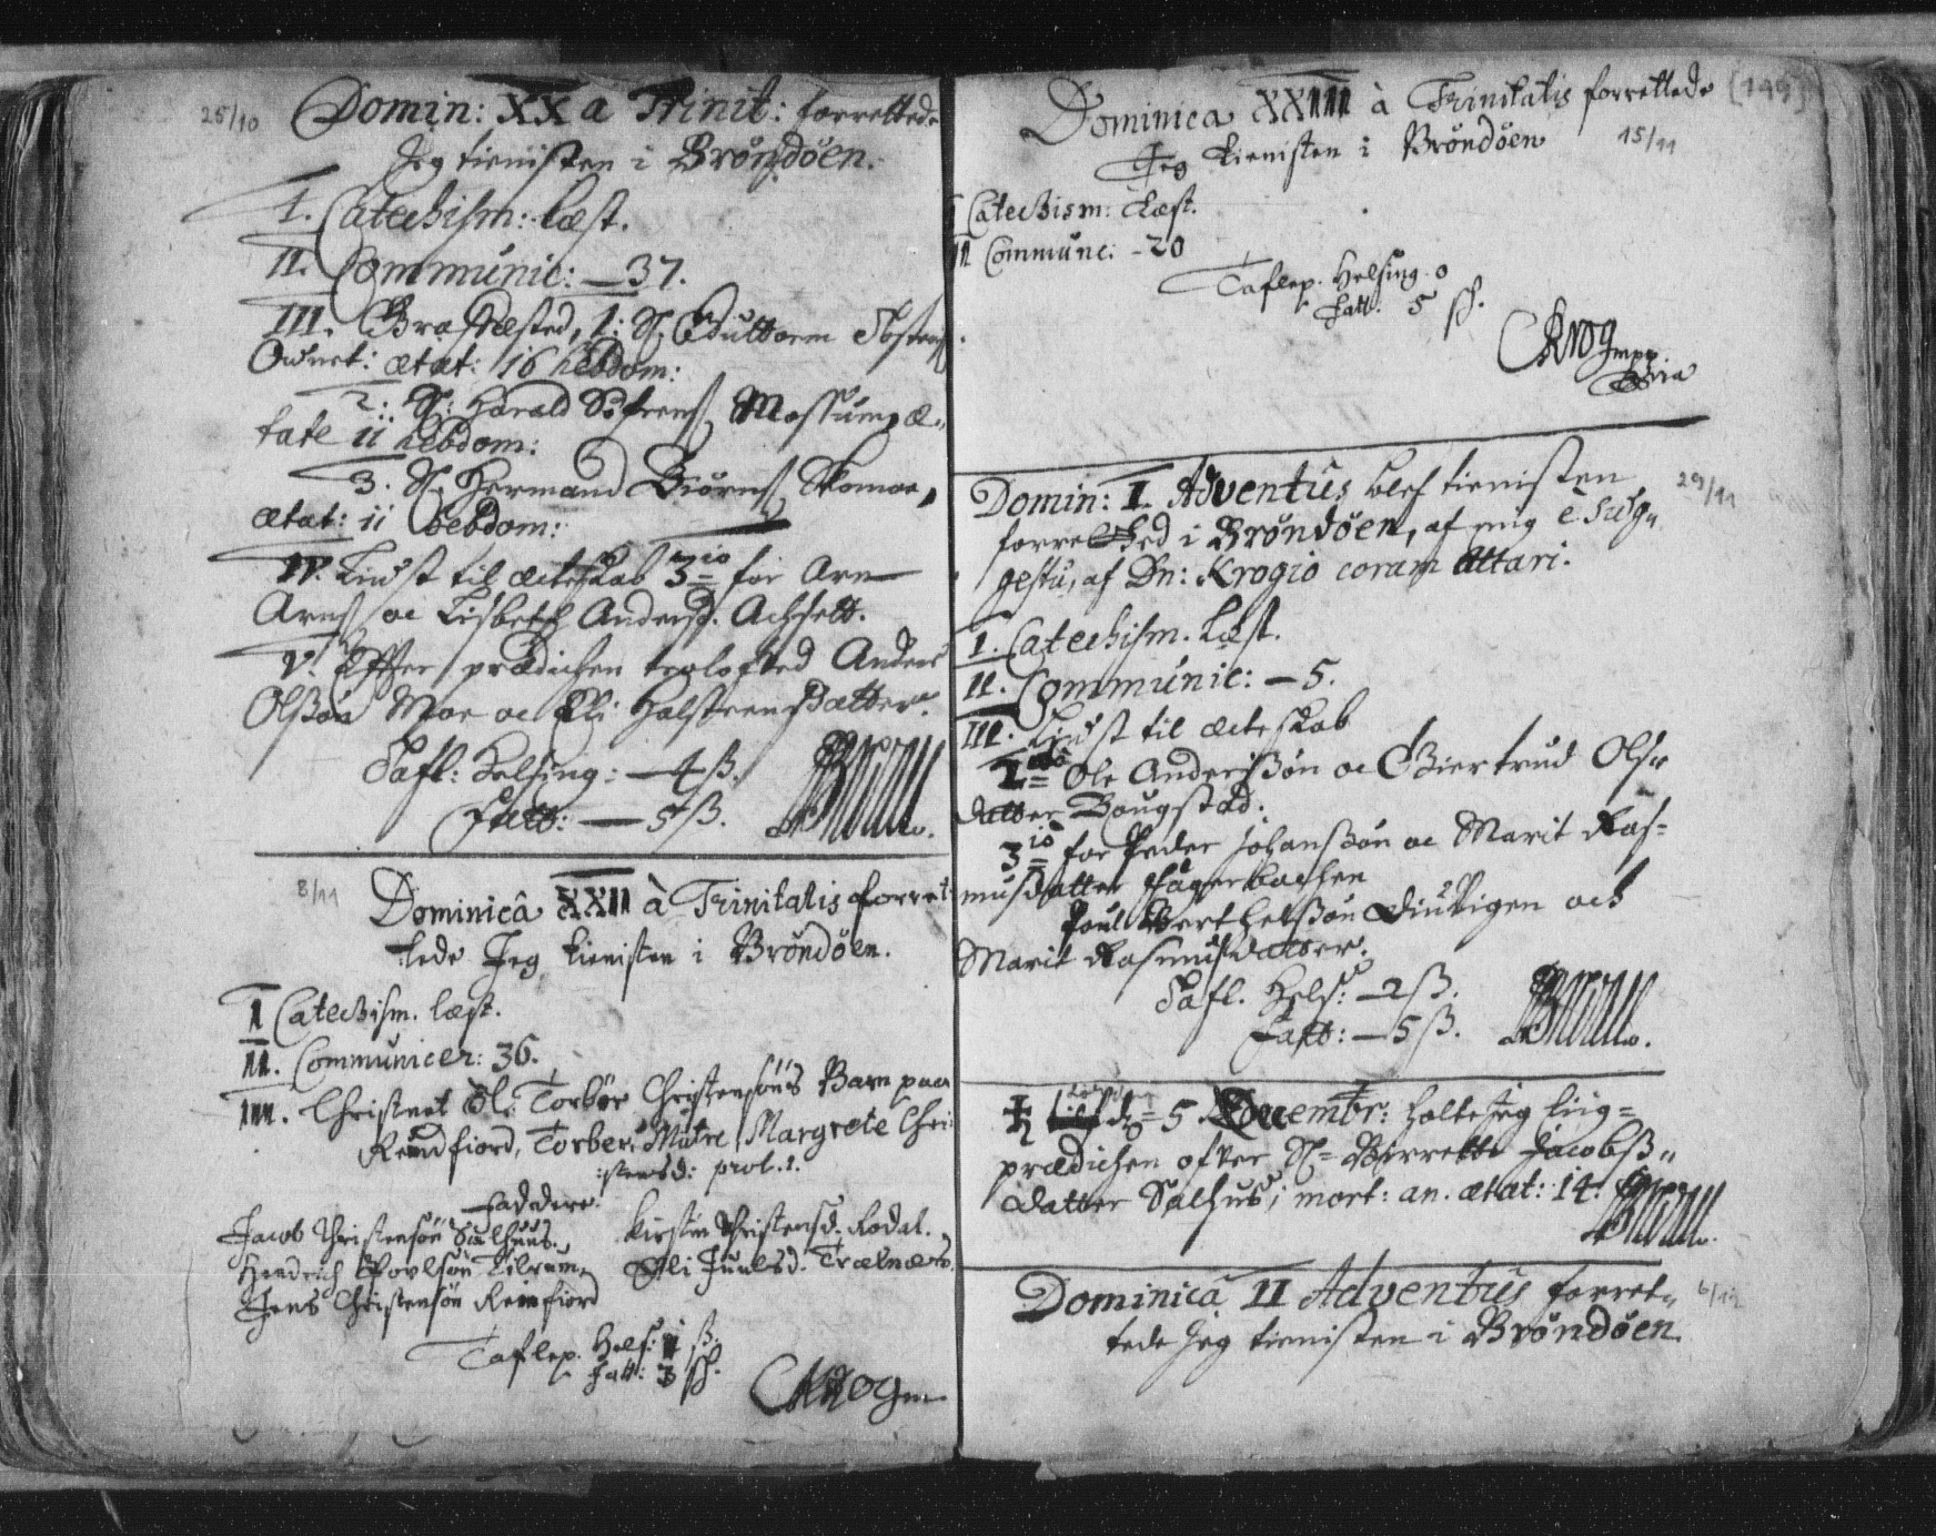 25/10
Domin: XX a Trinit: forrettede
Jeg tienisten i Brøndøen.
I. Catechism: læst.
II. Communic: — 37.
III. Græsfæsted, 1: S. Guttorm
ætat: 16 hebdom:
2: S: Harald Søfrens. Mossum, æ-
tate 11 hebdom:
3. S. Hermand Biørns. Skomoe,
ætat: 11 hebdom:
IV. Liust til æcteskab 3io for Arn
Arns. oc Lisbeth Andersd.
V. Effter prædichen trolofved Anders
Olssøn Moe oc Eli Halsteenssdatter.
Tafl: Helsing: — 4 ß.
Fatt: — 5 ß.
8/11
Dominicâ XXII à Trinitatis forret-
tede Jeg tienisten i Brøndøen.
I Catechism. læst.
II. Communicer: 36.
III. Christnet Ole Torbør Christensøns Barn paa
Remdfiord, Torber Mutre Margrete Chri-
stensd: prol. 1.
Faddere.
Jacob Christensøn Salhuus.
Hendrich Povlsøn Tilrum.
Jens Christensøn Remfiord
Kirsten Christensd. Rodal.
Eli Juulsd. Trælnæs.
Taflep. Hels: 1 ß.
Fatt: 3 sch.
CKrog
[199]
Dominica XXIII à Trinitatis forrettede
Jeg tienisten i Brøndøen
15/11
I Catechism: læst.
II Commune: - 20
Taflep. Helsing. 0
Fatt. 5 sch.
CKrog mpp.
29/11
Domin: I. Adventus blef tienisten
forretted i Brøndøen, af mig è sug-
gestu, af Dn: Krogio coram Altari.
I. Catechism. Læst.
II. Communic: — 5.
III. Liust til æcteskab
Ole Anderssøn oc Giertrud Ols-
datter Bougstad.
3io for Peder Johanssøn oc Marit Ras-
musdatter
Poul Berthelssøn oc
Marit Rasmusdatter.
Tafl. Hels: — 2 ß.
Fatt: — 5 ß.
5 Decembr: holte Jeg liig-
prædichen ofver S. Birrette Jacobs-
datter Salhus, mort: an. ætat: 14.
6/12
Dominicâ II Adventus forret-
tede Jeg tienisten i Brøndøen.